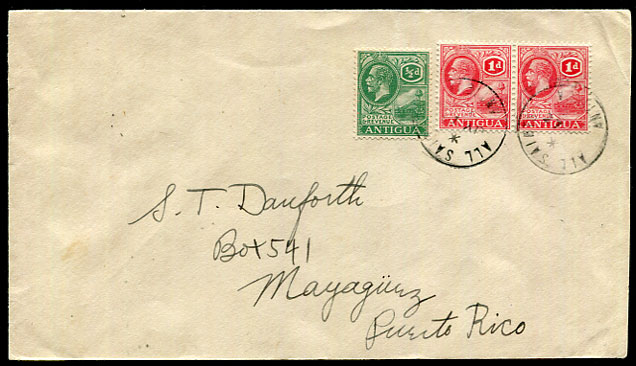 ½d
1d
1d
POSTAGE & REVENUE
ANTIGUA
POSTAGE & REVENUE
ANTIGUA
POSTAGE & REVENUE
ANTIGUA
ALL SAI
ALL SAI
S. T. Danforth
Box 541
Mayagüez
Puerto Rico